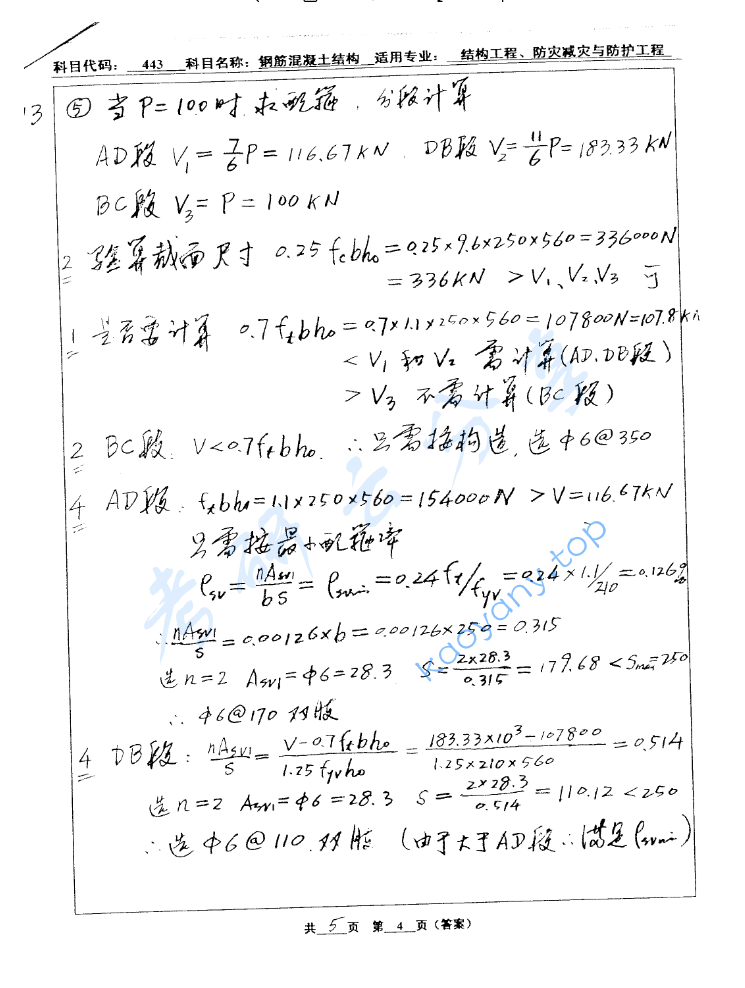 科目代码： 443 科目名称：钢筋混凝土结构 适用专业： 结构工程、防灾减灾与防护工程
13 ⑤ 当P=100时 求配箍，分段计算
AD段 V₁=7/6P=116.67KN DB段 V₂=11/6P=183.33KN
BC段 V₃=P=100KN
2 验算截面尺寸 0.25fcbh₀=0.25×9.6×250×560=336000N
=336KN >V₁、V₂、V₃ 可
1 是否需计算 0.7ftbh₀=0.7×1.1×250×560=107800N=107.8KN
<V₁和V₂ 需计算(AD.DB段)
>V₃ 不需计算(BC段)
2 BC段. V<0.7ftbh₀. ∴只需按构造，选φ6@350
4 AD段. ftbh₀=1.1×250×560=154000N >V=116.67KN
只需按最小配箍率
ρsv=nAsv1/bs=ρsvmin=0.24ft/fyv=0.24×1.1/210=0.126%
∴nAsv1/s=0.00126×b=0.00126×250=0.315
选n=2 Asv1=φ6=28.3 S=2×28.3/0.315=179.68<Smax=250
∴φ6@170 双肢
4 DB段：nAsv1/s=V-0.7ftbh₀/1.25fyvh₀=183.33×10³-107800/1.25×210×560=0.514
选n=2 Asv1=φ6=28.3 S=2×28.3/0.514=110.12<250
∴选φ6@110.双肢 (由于大于AD段∴满足ρsvmin)
共 5 页 第 4 页（答案）
考研云分享
kaoyany.top